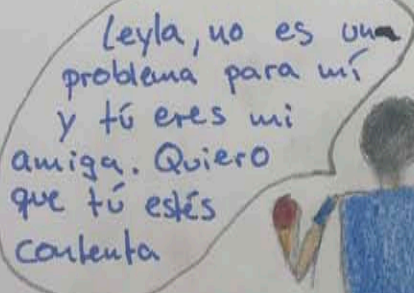 Leyla, no es una
problema para mí
y tú eres mi
amiga. Quiero
que tú estés
contenta